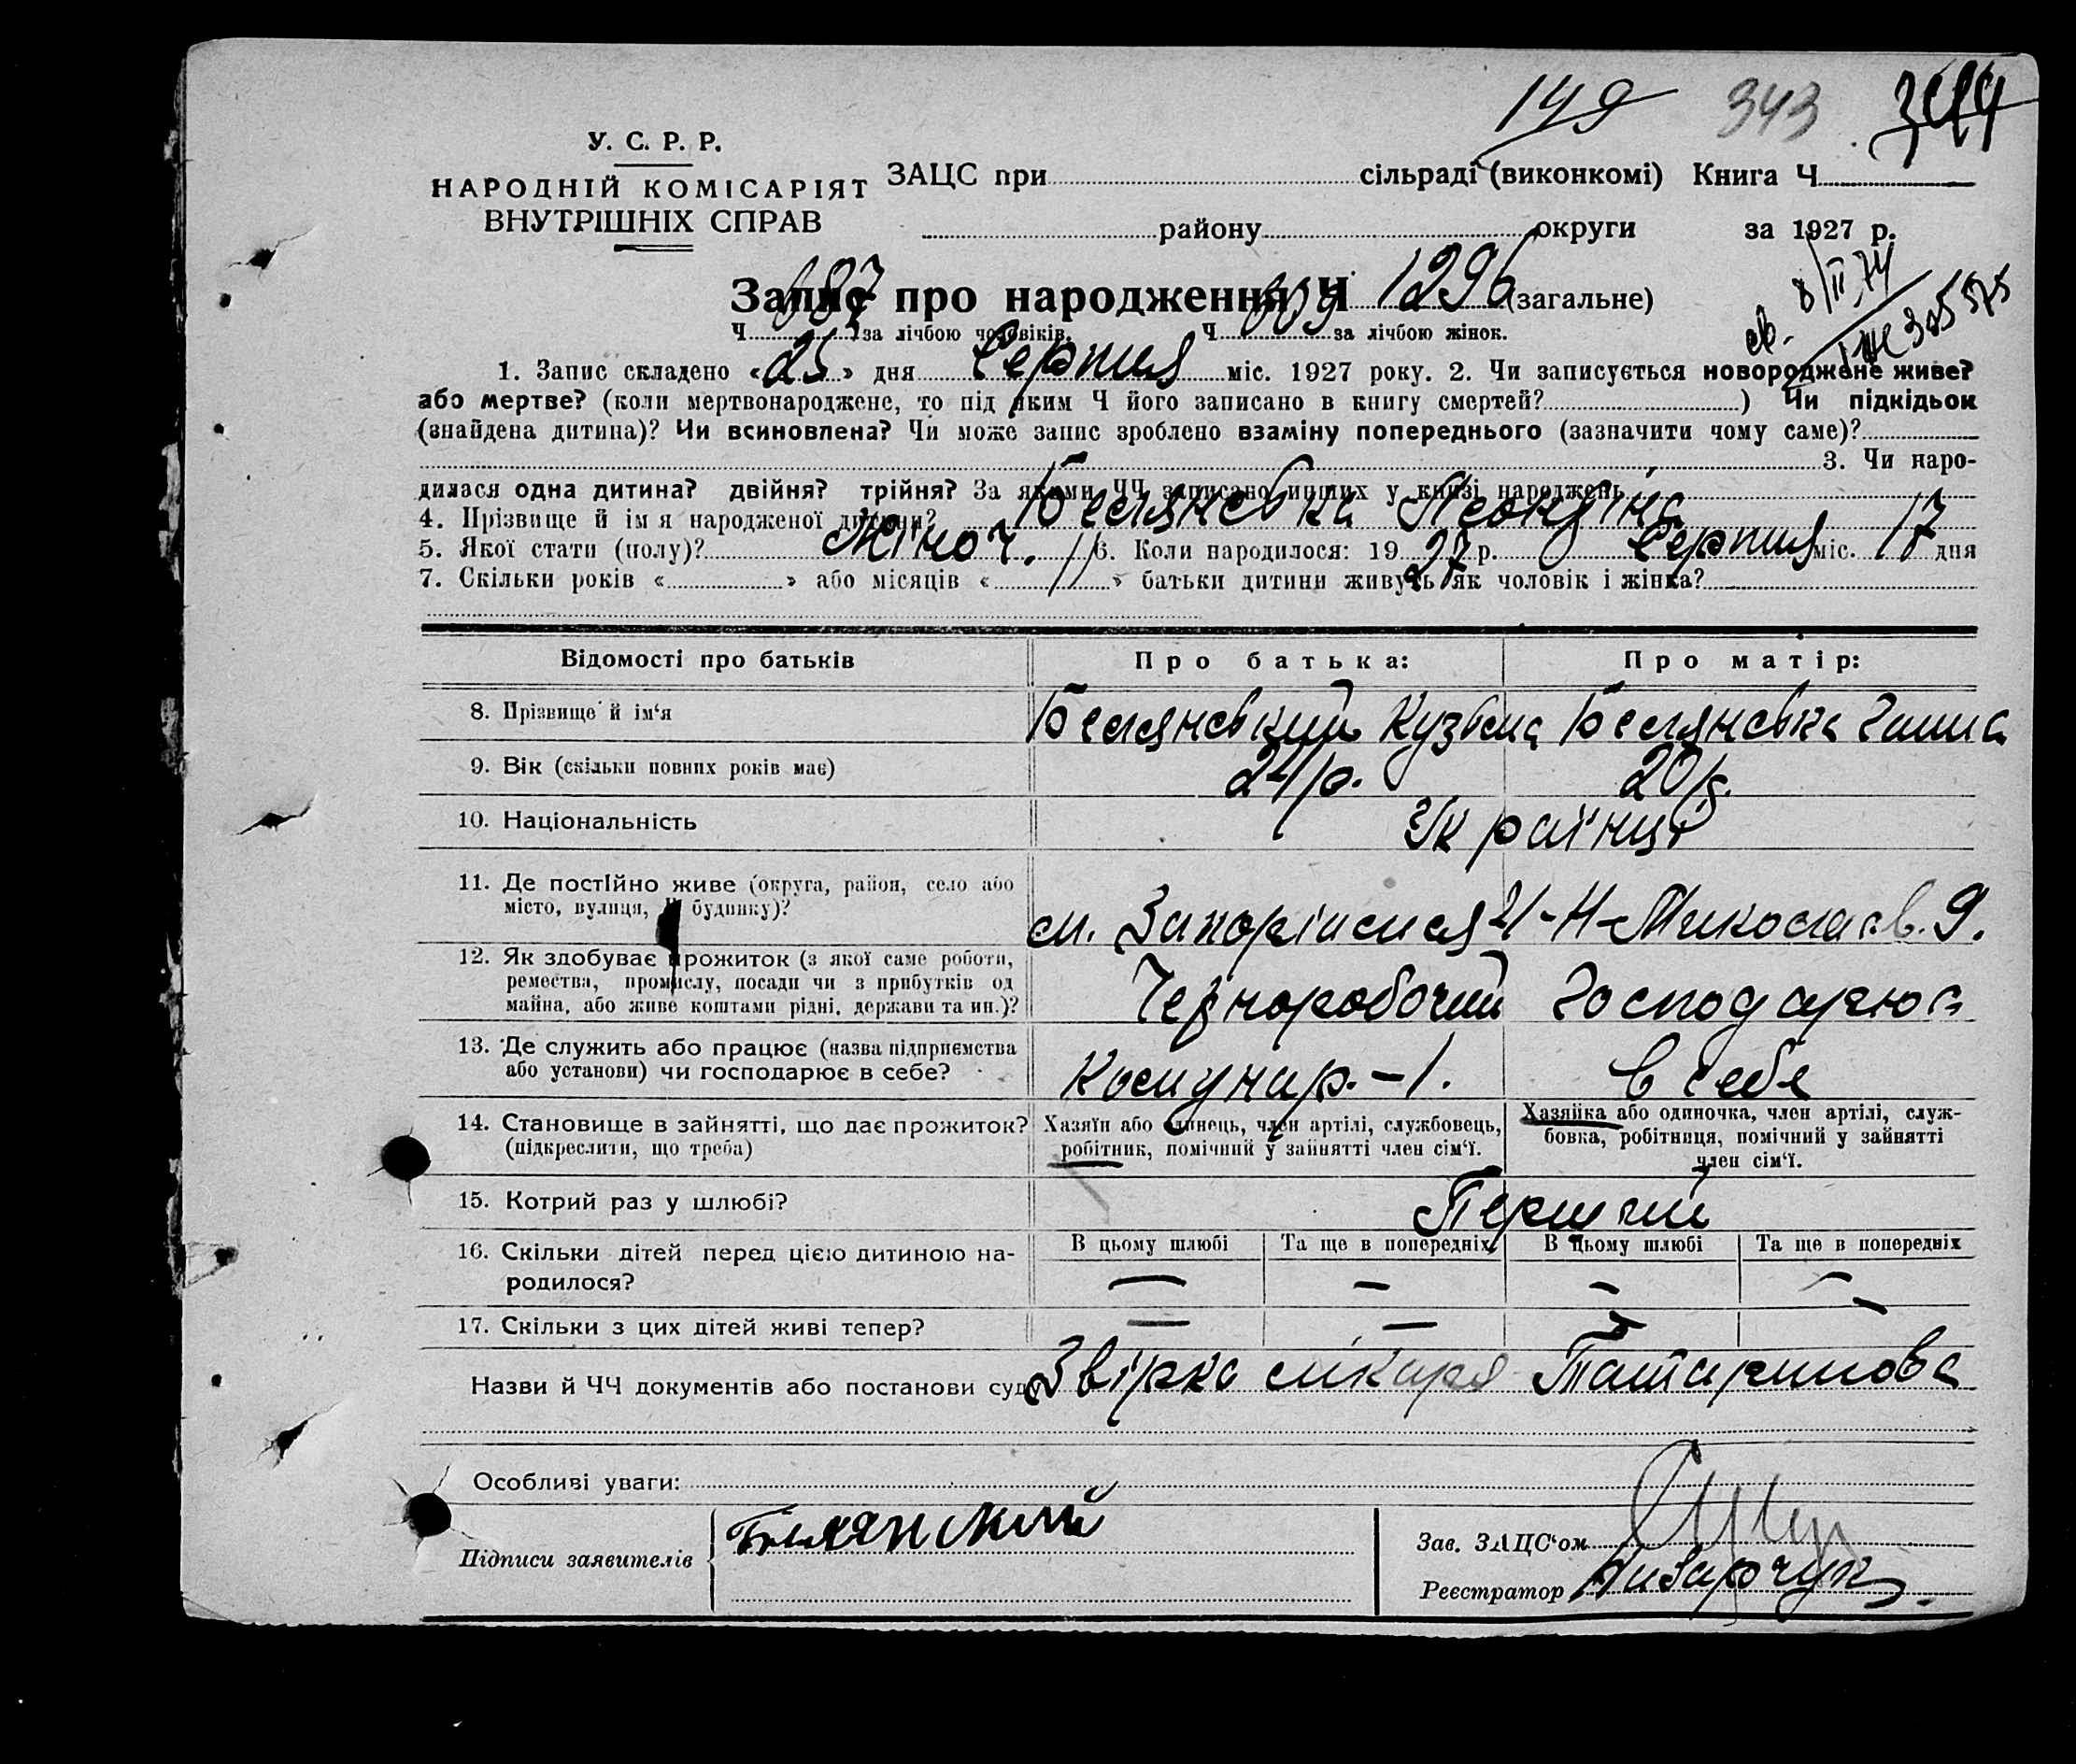 149 343 344
У. С. Р. Р.
НАРОДНІЙ КОМІСАРІЯТ
ВНУТРІШНІХ СПРАВ
ЗАЦС при сільраді (виконкомі) Книга Ч.
району округи за 1927 р.
св. 8/II 74
Запис про народження Ч 1296 (загальне)
Ч 687 за лічбою чоловіків. Ч 609 за лічбою жінок.
1. Запис складено «25» дня Серпня міс. 1927 року. 2. Чи записується новороджене живе?
або мертве? (коли мертвонароджене, то під яким Ч його записано в книгу смертей? ) Чи підкідьок
(знайдена дитина)? Чи всиновлена? Чи може запис зроблено взаміну попереднього (зазначити чому саме)?
3. Чи наро-
дилася одна дитина? двійня? трійня? За якими ЧЧ записано инших у книзі народжень
4. Прізвище й ім я народженої дитини? Белянська Леонтіна
5. Якої стати (полу)? Жіноч. 6. Коли народилося: 1927 р. Серпня міс. 17 дня
7. Скільки років « » або місяців « 11 » батьки дитини живуть як чоловік і жінка?
Відомості про батьків Про батька: Про матір:
8. Прізвище й ім'я Белянський Кузьма Белянська Ганна
9. Вік (скільки повних років має) 24 р. 20 р.
10. Національність Українці
11. Де постійно живе (округа, район, село або
місто, вулиця, Ч будинку)?
м. Запоріжжя 21-Н-Миколаєв. 9.
12. Як здобуває прожиток (з якої саме роботи,
ремества, промислу, посади чи з прибутків од
майна, або живе коштами рідні, держави та ин.)?
Черноробочий Господарює
13. Де служить або працює (назва підприємства
або установи) чи господарює в себе?
Комунар.-1. в себе
14. Становище в зайнятті, що дає прожиток?
(підкреслити, що треба)
Хазяїн або одинець, член артілі, службовець,
робітник, помічний у зайнятті член сім'ї.
Хазяйка або одиночка, член артілі, служ-
бовка, робітниця, помічний у зайнятті
член сім'ї.
15. Котрий раз у шлюбі? Перший
16. Скільки дітей перед цією дитиною на-
родилося?
В цьому шлюбі Та ще в попередніх В цьому шлюбі Та ще в попередніх
— — — —
17. Скільки з цих дітей живі тепер? — — — —
Назви й ЧЧ документів або постанови суду Звірка лікаря Татаринова
Особливі уваги:
Підписи заявителів Білянский
Зав. ЗАЦС'ом
Реєстратор